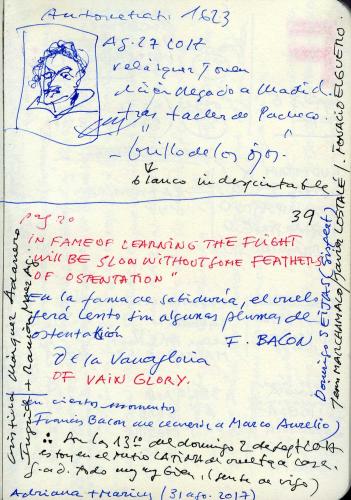 Autorretrato 1623
Ag. 27 2017
Velázquez Joven
recién llegado a Madrid
tras taller de Pacheco.
"brillo de los ojos".
↓
blanco indescriptable
39
pag 20
IN FAME OF LEARNING THE FLIGHT
WILL BE SLOW WITHOUT SOME FEATHERS
OF OSTENTATION"
En la fama de sabiduría, el vuelo
será lento sin algunas plumas de
ostentación
F. BACON
De la Vanagloria
OF VAIN GLORY.
en ciertos momentos
Francis Bacon me recuerda a Marco Aurelio)
A las 13 del domingo 2 de sept 2017
estoy en el patio LATINA de vuelta a casa
todo muy bien. (gente de Vigo)
Adriana + Marius (31 ago. 2017)
Cristina Márquez Adanero
Ingrid + Ramón
Domingo SEITAS
Javier LOSTALÉ / IGNACIO ELGUERO.